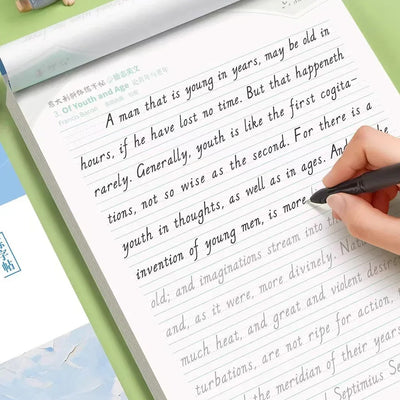 意大利斜体练字帖
3. Of Youth and Age
Francis Bacon
A man that is young in years, may be old in
hours, if he have lost no time. But that happeneth
rarely. Generally, youth is like the first cogita-
tions, not so wise as the second. For there is a
youth in thoughts, as well as in ages. And the
invention of young men, is more
old; and imaginations stream into
and, as it were, more divinely.
much heat, and great and violent desire
turbations, are not ripe for action,
the meridian of their years
Septimius
字帖